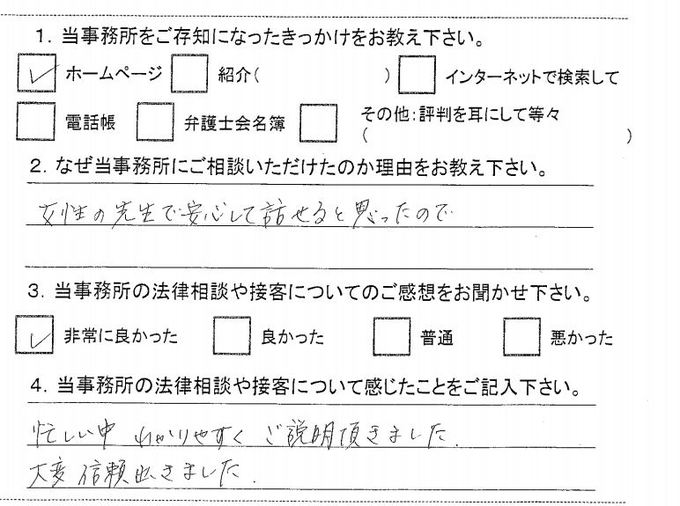 1. 当事務所をご存知になったきっかけをお教え下さい。
ホームページ 紹介( ) インターネットで検索して
電話帳 弁護士会名簿 その他:評判を耳にして等々
( )
2. なぜ当事務所にご相談いただけたのか理由をお教え下さい。
女性の先生で安心して話せると思ったので
3. 当事務所の法律相談や接客についてのご感想をお聞かせ下さい。
非常に良かった 良かった 普通 悪かった
4. 当事務所の法律相談や接客について感じたことをご記入下さい。
忙しい中 わかりやすく ご説明頂きました.
大変 信頼出きました.